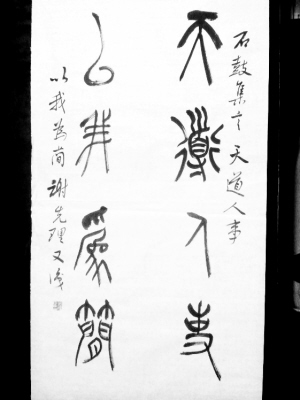 石鼓集 天道人事
天道人事
以我為簡
以我為简 謝先理又